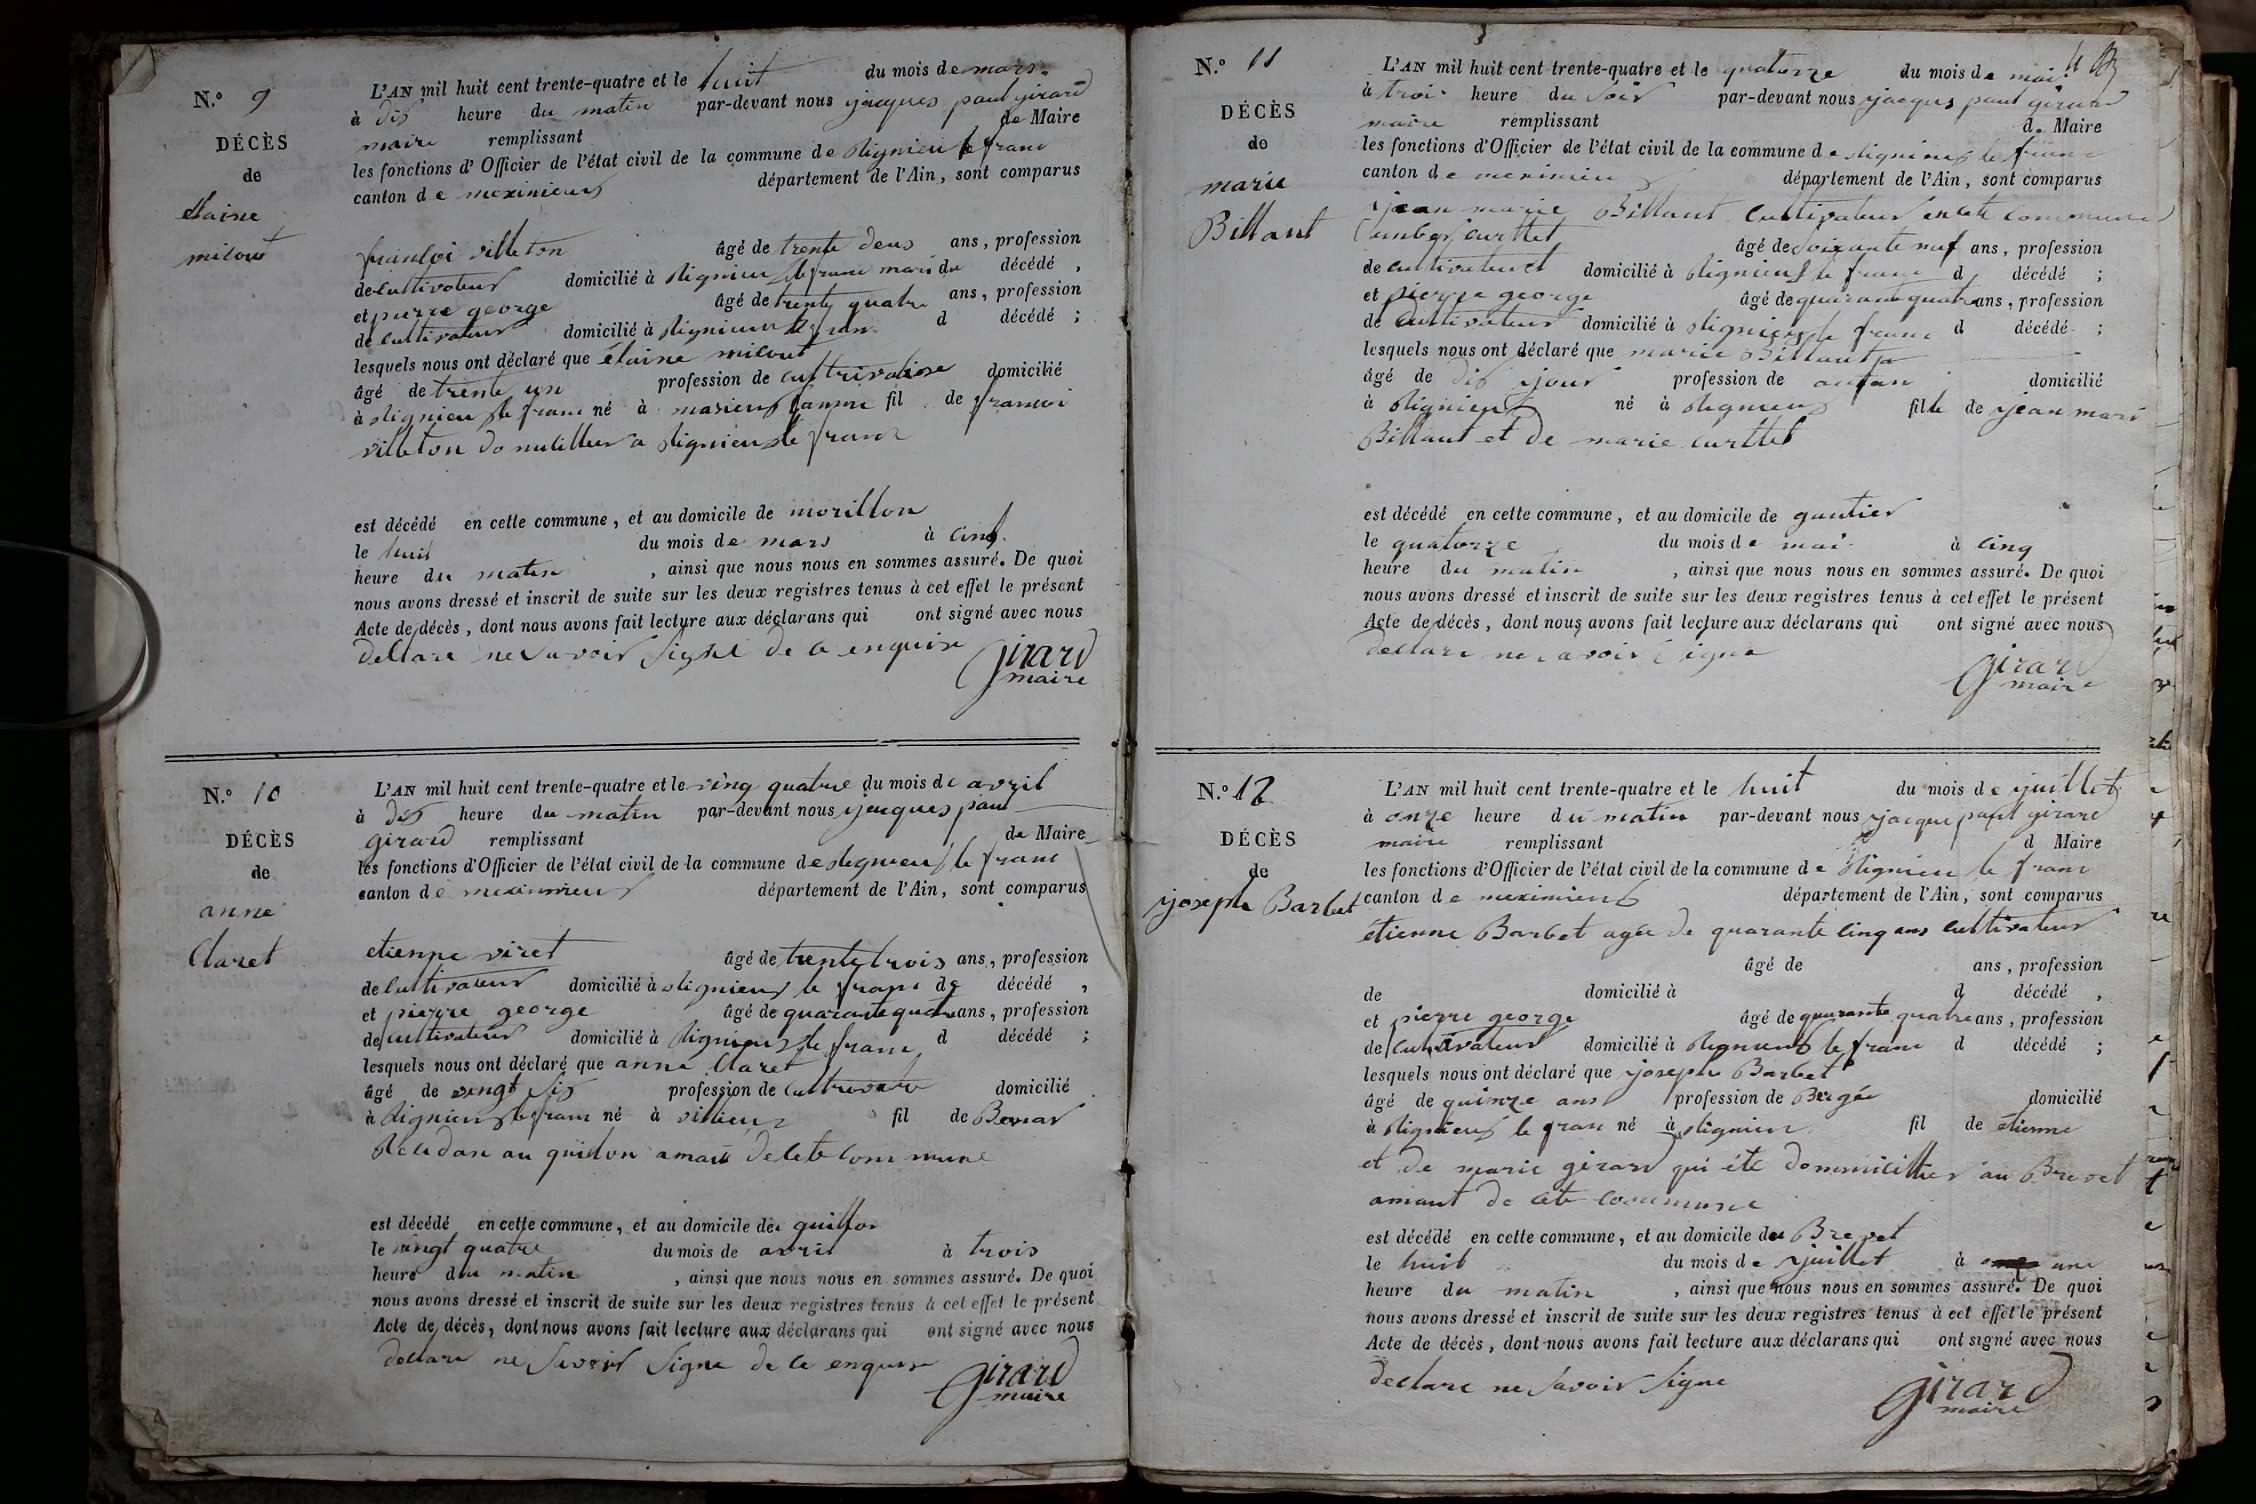 N.º 9
DÉCÈS
de
élaine
milout
L'AN mil huit cent trente-quatre et le huit du mois de mars
à dis heure du matin par-devant nous jacques paul girard
maire remplissant de Maire
les fonctions d'Officier de l'état civil de la commune de slignieu le franc
canton de meximieux département de l'Ain, sont comparus
villeton âgé de trente deus ans, profession
de cultivateur domicilié à slignieu le franc mari du décédé,
et pierre george âgé de trente quatre ans, profession
de cultivateur domicilié à slignieux le franc d décédé;
lesquels nous ont déclaré que élaine milout
âgé de trente un profession de domicilié
à slignieu le franc né à fil de francoi
villeton a slignieu le franc
est décédé en cette commune, et au domicile de morillon
le huit du mois de mars à cinq
heure du matin, ainsi que nous nous en sommes assuré. De quoi
nous avons dressé et inscrit de suite sur les deux registres tenus à cet effet le présent
Acte de décès, dont nous avons fait lecture aux déclarans qui ont signé avec nous
declare ne savoir signé de a enquire
Girard
maire
N.º 10
DÉCÈS
de
anne
Claret
L'AN mil huit cent trente-quatre et le ving quatre du mois de avril
à dis heure du matin par-devant nous jacques paul
girard remplissant de Maire
les fonctions d'Officier de l'état civil de la commune de slignieu le franc
canton de meximieux département de l'Ain, sont comparus
etienne viret âgé de trente trois ans, profession
de cultivateur domicilié à slignieux le franc de décédé,
et pierre george âgé de quarante quatre ans, profession
de cultivateur domicilié à slignieux le franc d décédé;
lesquels nous ont déclaré que anne Claret
âgé de vingt sis profession de domicilié
à slignieux le franc né à villieux fil de
au guillon de cete commune
est décédé en cette commune, et au domicile de guillon
le vingt quatre du mois de avril à trois
heure du matin, ainsi que nous nous en sommes assuré. De quoi
nous avons dressé et inscrit de suite sur les deux registres tenus à cet effet le présent
Acte de décès, dont nous avons fait lecture aux déclarans qui ont signé avec nous
declare ne savoir signe de ce enquire
Girard
maire
N.º 11
DÉCÈS
de
marie
Billaut
L'AN mil huit cent trente-quatre et le quatorze du mois de mai
à trois heure du soir par-devant nous jacques paul girard
maire remplissant de Maire
les fonctions d'Officier de l'état civil de la commune de slignieux le franc
canton de meximieu département de l'Ain, sont comparus
jean marie Billaut cultivateur en cete commune
curttet âgé de soixante neuf ans, profession
de cultivateur domicilié à slignieux le franc d décédé;
et pierre george âgé de quarante quatre ans, profession
de cultivateur domicilié à slignieux le franc d décédé;
lesquels nous ont déclaré que marie Billaut
âgé de dis jour profession de domicilié
à slignieux né à slignieux fille de jean mari
Billaut et de marie curttet
est décédé en cette commune, et au domicile de gautier
le quatorze du mois de mai à cinq
heure du matin, ainsi que nous nous en sommes assuré. De quoi
nous avons dressé et inscrit de suite sur les deux registres tenus à cet effet le présent
Acte de décès, dont nous avons fait lecture aux déclarans qui ont signé avec nous
declare ne savoir signe
Girard
maire
N.º 12
DÉCÈS
de
joseph Barbet
L'AN mil huit cent trente-quatre et le huit du mois de juillet
à onze heure du matin par-devant nous jacque paul girard
maire remplissant d Maire
les fonctions d'Officier de l'état civil de la commune de slignieu le franc
canton de meximieux département de l'Ain, sont comparus
étienne Barbet agée de quarante cinq ans cultivateur
âgé de ans, profession
de domicilié à d décédé,
et pierre george âgé de quarante quatre ans, profession
de cultivateur domicilié à slignieux le franc d décédé;
lesquels nous ont déclaré que joseph Barbet
âgé de quinze ans profession de Bergée domicilié
à slignieux le franc né à slignieu fil de étienne
et de marie girard qui été dommicillier au Brevet
amant de cete commune
est décédé en cette commune, et au domicile du Brevet
le huit du mois de juillet à une
heure du matin, ainsi que nous nous en sommes assuré. De quoi
nous avons dressé et inscrit de suite sur les deux registres tenus à cet effet le présent
Acte de décès, dont nous avons fait lecture aux déclarans qui ont signé avec nous
declare ne savoir signe
Girard
maire